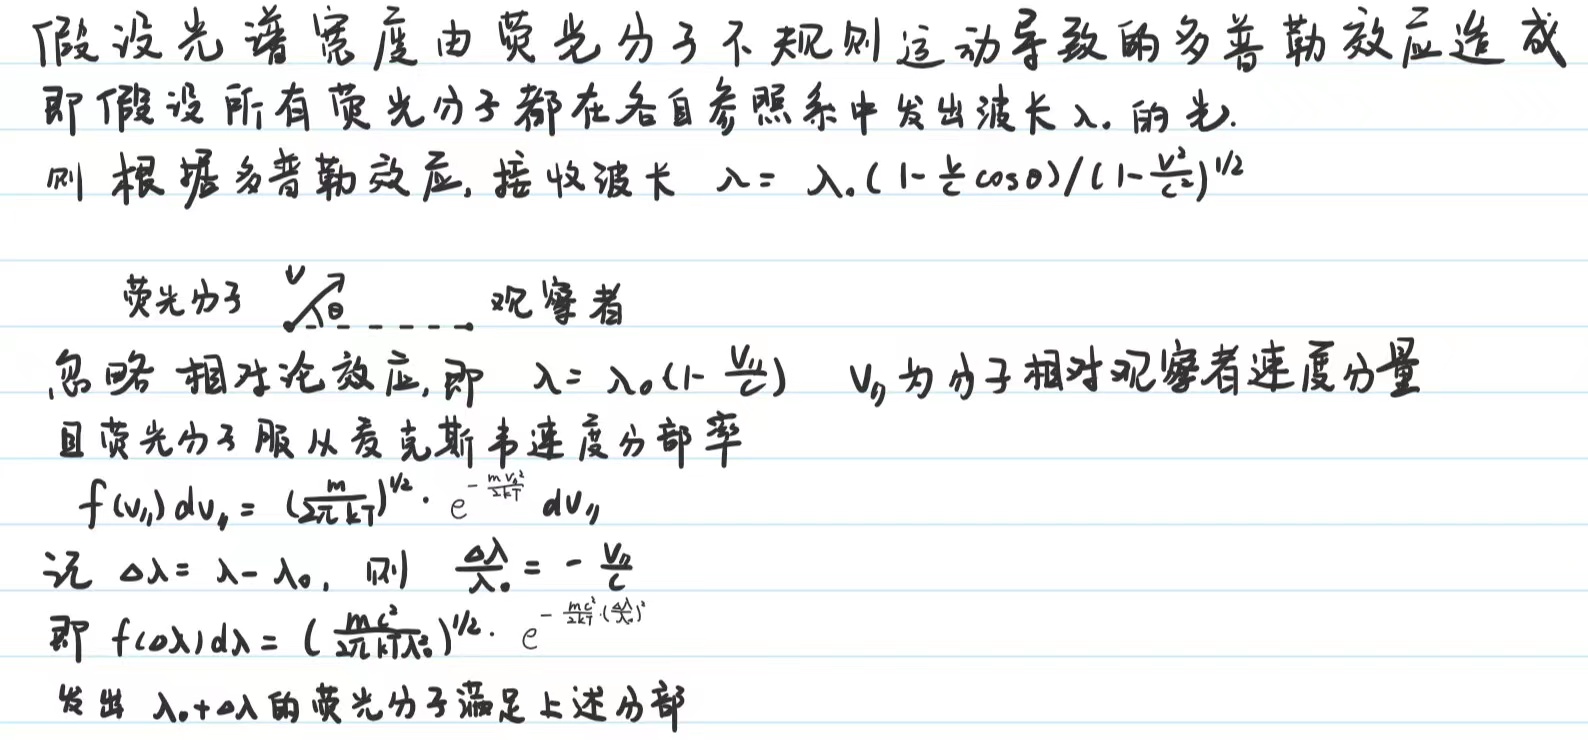 假设光谱宽度由荧光分子不规则运动导致的多普勒效应造成
即假设所有荧光分子都在各自参照系中发出波长λ₀的光.
则根据多普勒效应,接收波长 λ = λ₀(1-v/c cosθ)/(1-v²/c²)^1/2
荧光分子 v θ 观察者
忽略相对论效应,即 λ = λ₀(1-v∥/c) v∥为分子相对观察者速度分量
且荧光分子服从麦克斯韦速度分部率
f(v∥)dv∥ = (m/2πkT)^1/2 · e^(-mv∥²/2kT) dv∥
记 Δλ = λ-λ₀, 则 Δλ/λ₀ = -v∥/c
即 f(Δλ)dλ = (mc²/2πkTλ₀²)^1/2 · e^(-mc²/2kT·(Δλ/λ₀)²)
发出 λ₀+Δλ的荧光分子满足上述分部